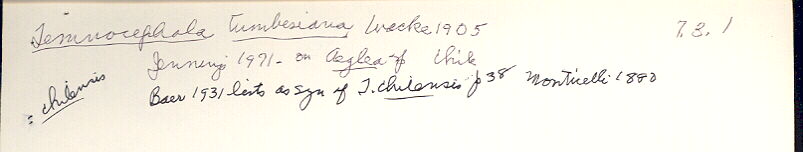 Temnocephala tumbesiana Wacke 1905 7.3.1
Jennings 1971 - on Aegla of Chile
= chilensis
Baer 1931 lists as syn of T. chilensis p 38 Monticelli 1880